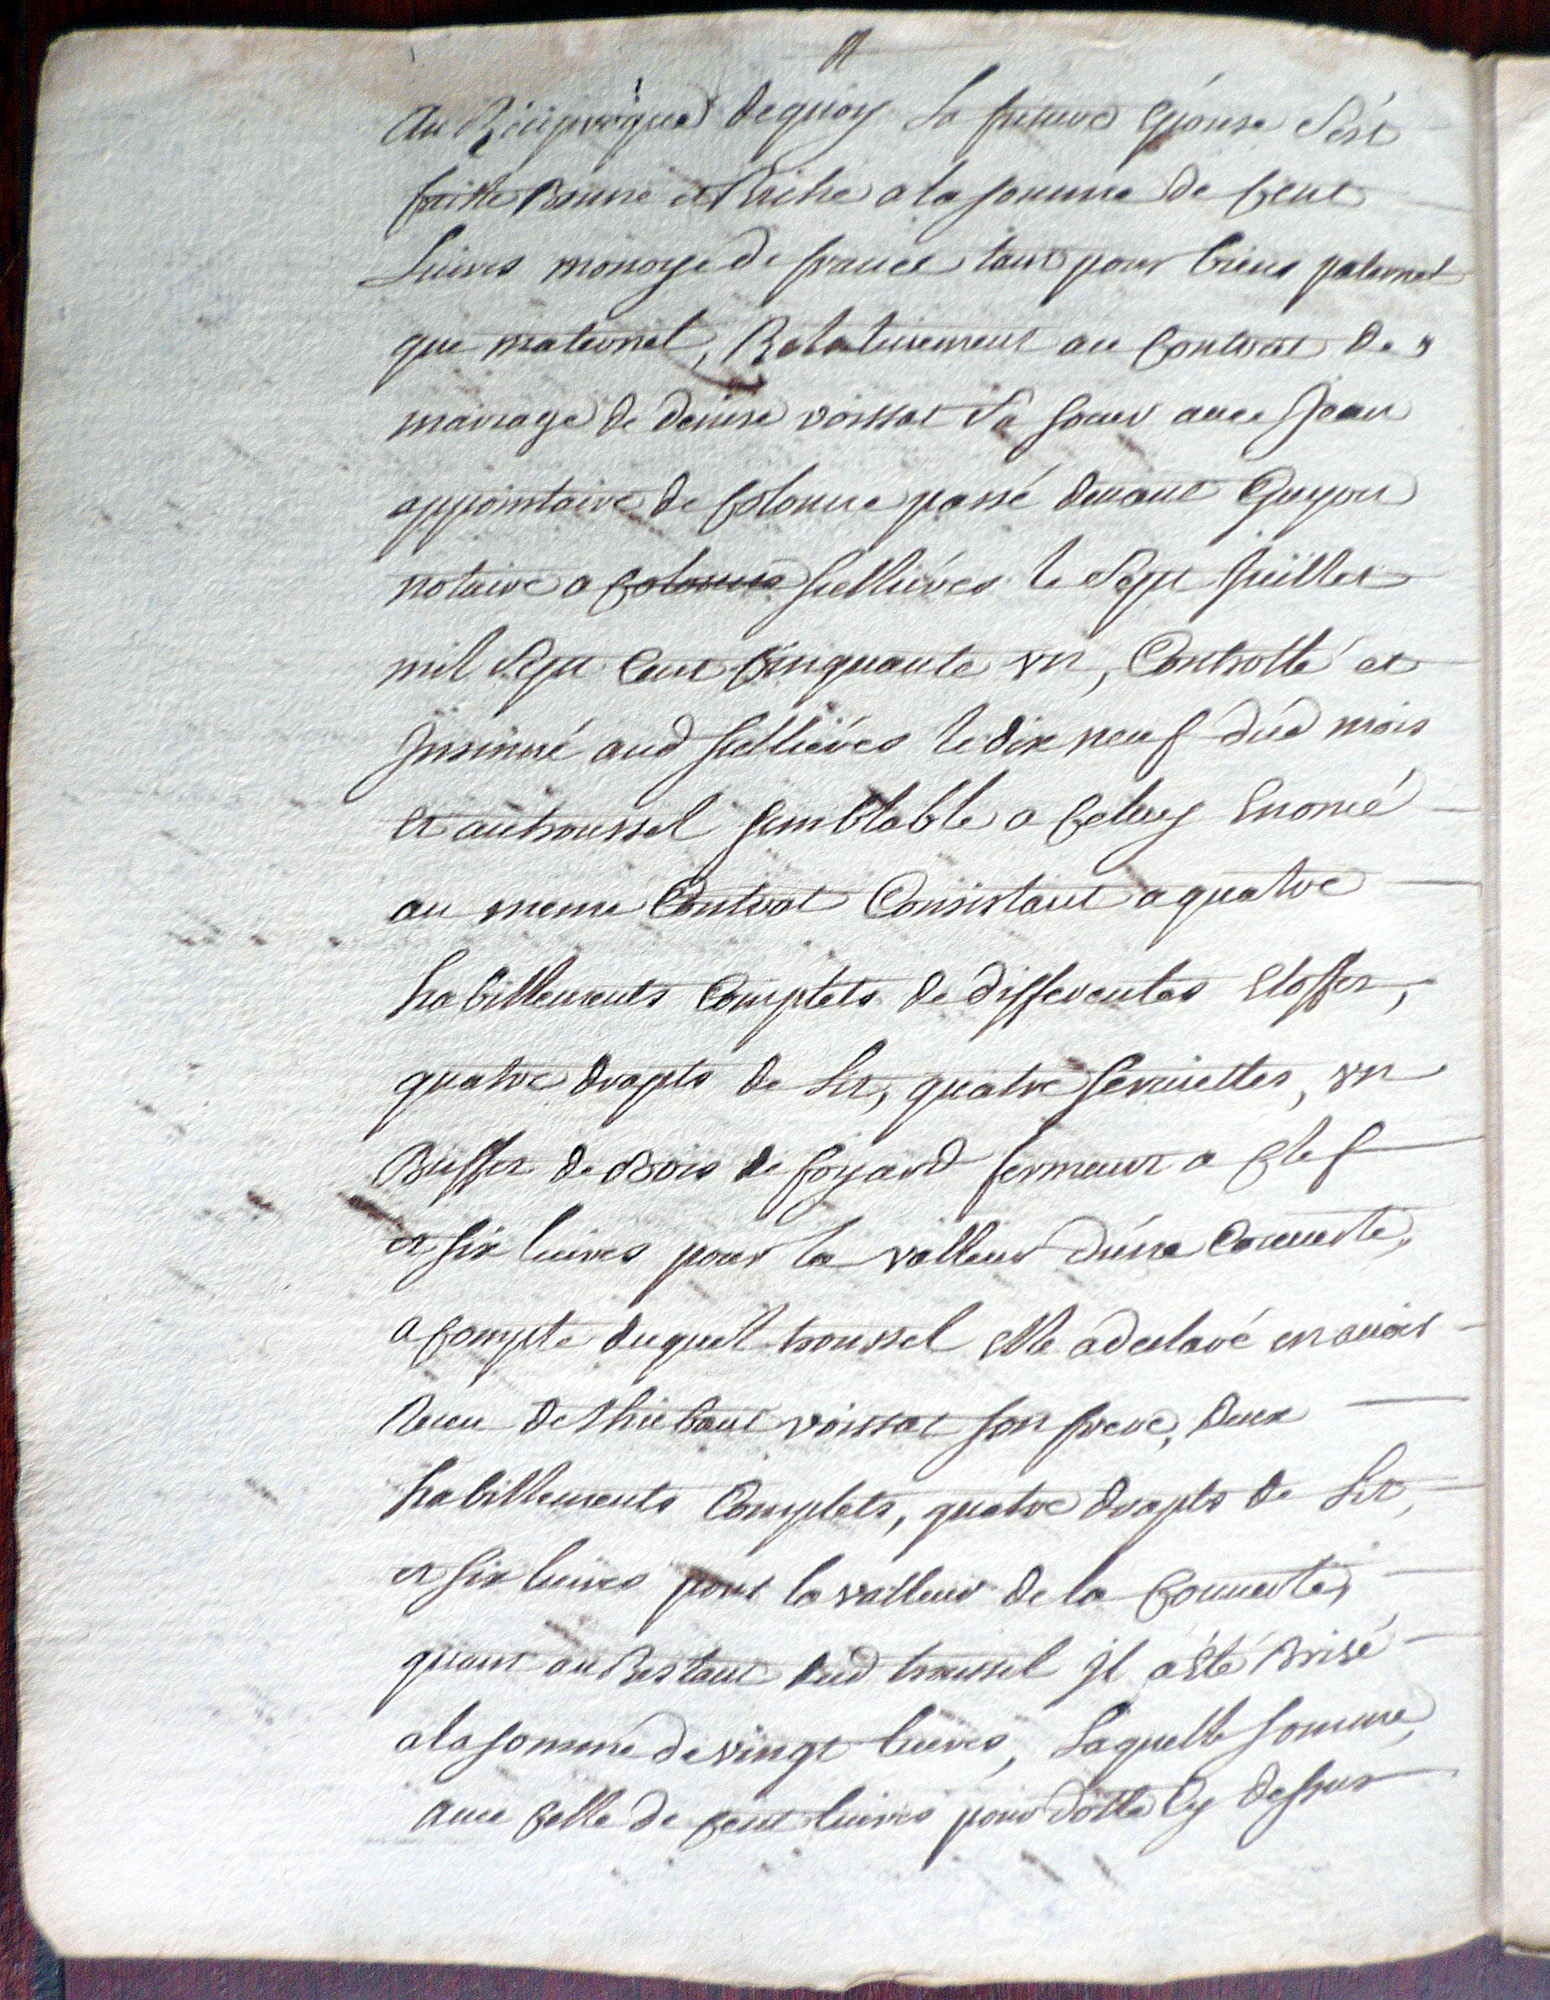 Au Réciproque dequoy La future Epouse s'est
faitte Bonne et Riche a la somme de cent
Livres monoye de france tant pour biens paternel
que maternel, Relativement au contrat de "
mariage de denise voissat sa soeur avec Jean
appointaire de Colonne passé devant Guyon
notaire a Colonne Sellières le Sept Juillet
mil Sept Cent Cinquante un, Controllé et
Jnsinué aud Sellières le dix neuf dud mois
et au troussel semblable a celuy Enoncé
au meme Contrat Consistant a quatre
habillements Complets de differentes Etoffes,
quatre drapts de Lit, quatre serviettes, un
Buffet de Bois de foyard fermant a clef
et six livres pour la valleur d'une Couverte,
a compte duquel troussel Elle a declaré en avoir
Recu de thiebaut voissat son frere, deux
habillements Complets, quatre drapts de Lit,
et six livres pour la valleur de la couverte,
quant au Restant dud troussel Jl a été Brisé
a la somme de vingt livres, Laquelle somme,
avec celle de cent livres pour dotte Cy dessus